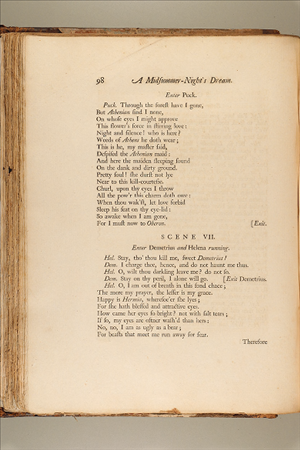 98 A Midsummer-Night's Dream.
Enter Puck.
Puck. Through the forest have I gone,
But Athenian find I none,
On whose eyes I might approve
This flower's force in stirring love:
Night and silence! who is here?
Weeds of Athens he doth wear;
This is he, my master said,
Despised the Athenian maid:
And here the maiden sleeping sound
On the dank and dirty ground.
Pretty soul! she durst not lye
Near to this kill-courtesie.
Churl, upon thy eyes I throw
All the pow'r this charm doth owe:
When thou wak'st, let love forbid
Sleep his seat on thy eye-lid:
So awake when I am gone,
For I must now to Oberon. [Exit.
SCENE VII.
Enter Demetrius and Helena running.
Hel. Stay, tho' thou kill me, sweet Demetrius!
Dem. I charge thee, hence, and do not haunt me thus.
Hel. O, wilt thou darkling leave me? do not so.
Dem. Stay on thy peril, I alone will go. [Exit Demetrius.
Hel. O, I am out of breath in this fond chace;
The more my prayer, the lesser is my grace.
Happy is Hermia, wheresoe'er she lyes;
For she hath blessed and attractive eyes.
How came her eyes so bright? not with salt tears;
If so, my eyes are oftner wash'd than hers:
No, no, I am as ugly as a bear;
For beasts that meet me run away for fear.
Therefore